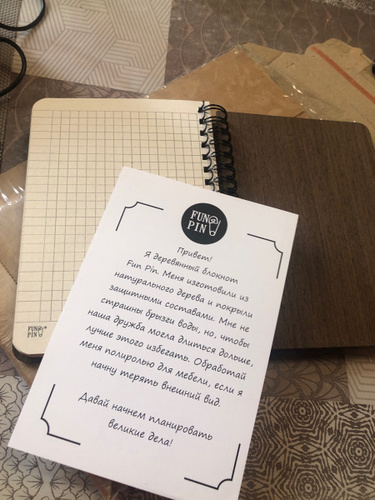 FUN
PIN
Привет!
Я деревянный блокнот
Fun Pin. Меня изготовили из
натурального дерева и покрыли
защитными составами. Мне не
страшны брызги воды, но, чтобы
наша дружба могла длиться дольше,
лучше этого избегать. Обработай
меня полиролью для мебели, если я
начну терять внешний вид.
Давай начнем планировать
великие дела!
FUN
PIN